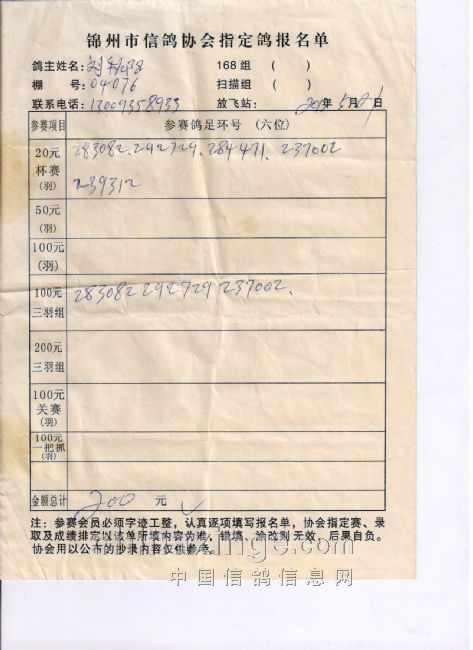 锦州市信鸽协会指定鸽报名单
鸽主姓名: 刘 168组 ( )
棚 号: 04076 扫描组 ( )
联系电话: 13009358933 放飞站: 年5月21日
参赛项目 参赛鸽足环号 (六位)
20元 283082. 292729. 284471. 237002
杯赛
(羽) 239312
50元
(羽)
100元
(羽)
100元 283082 292729 237002.
三羽组
200元
三羽组
100元
关赛
(羽)
100元
一把抓
(羽)
金额总计 200 元 ✓
注: 参赛会员必须字迹工整, 认真逐项填写报名单, 协会指定赛、录
取及成绩排定以该单所填内容为准, 错填、涂改则无效, 后果自负。
协会用以公布的抄录内容仅供参考。
中国信鸽信息网